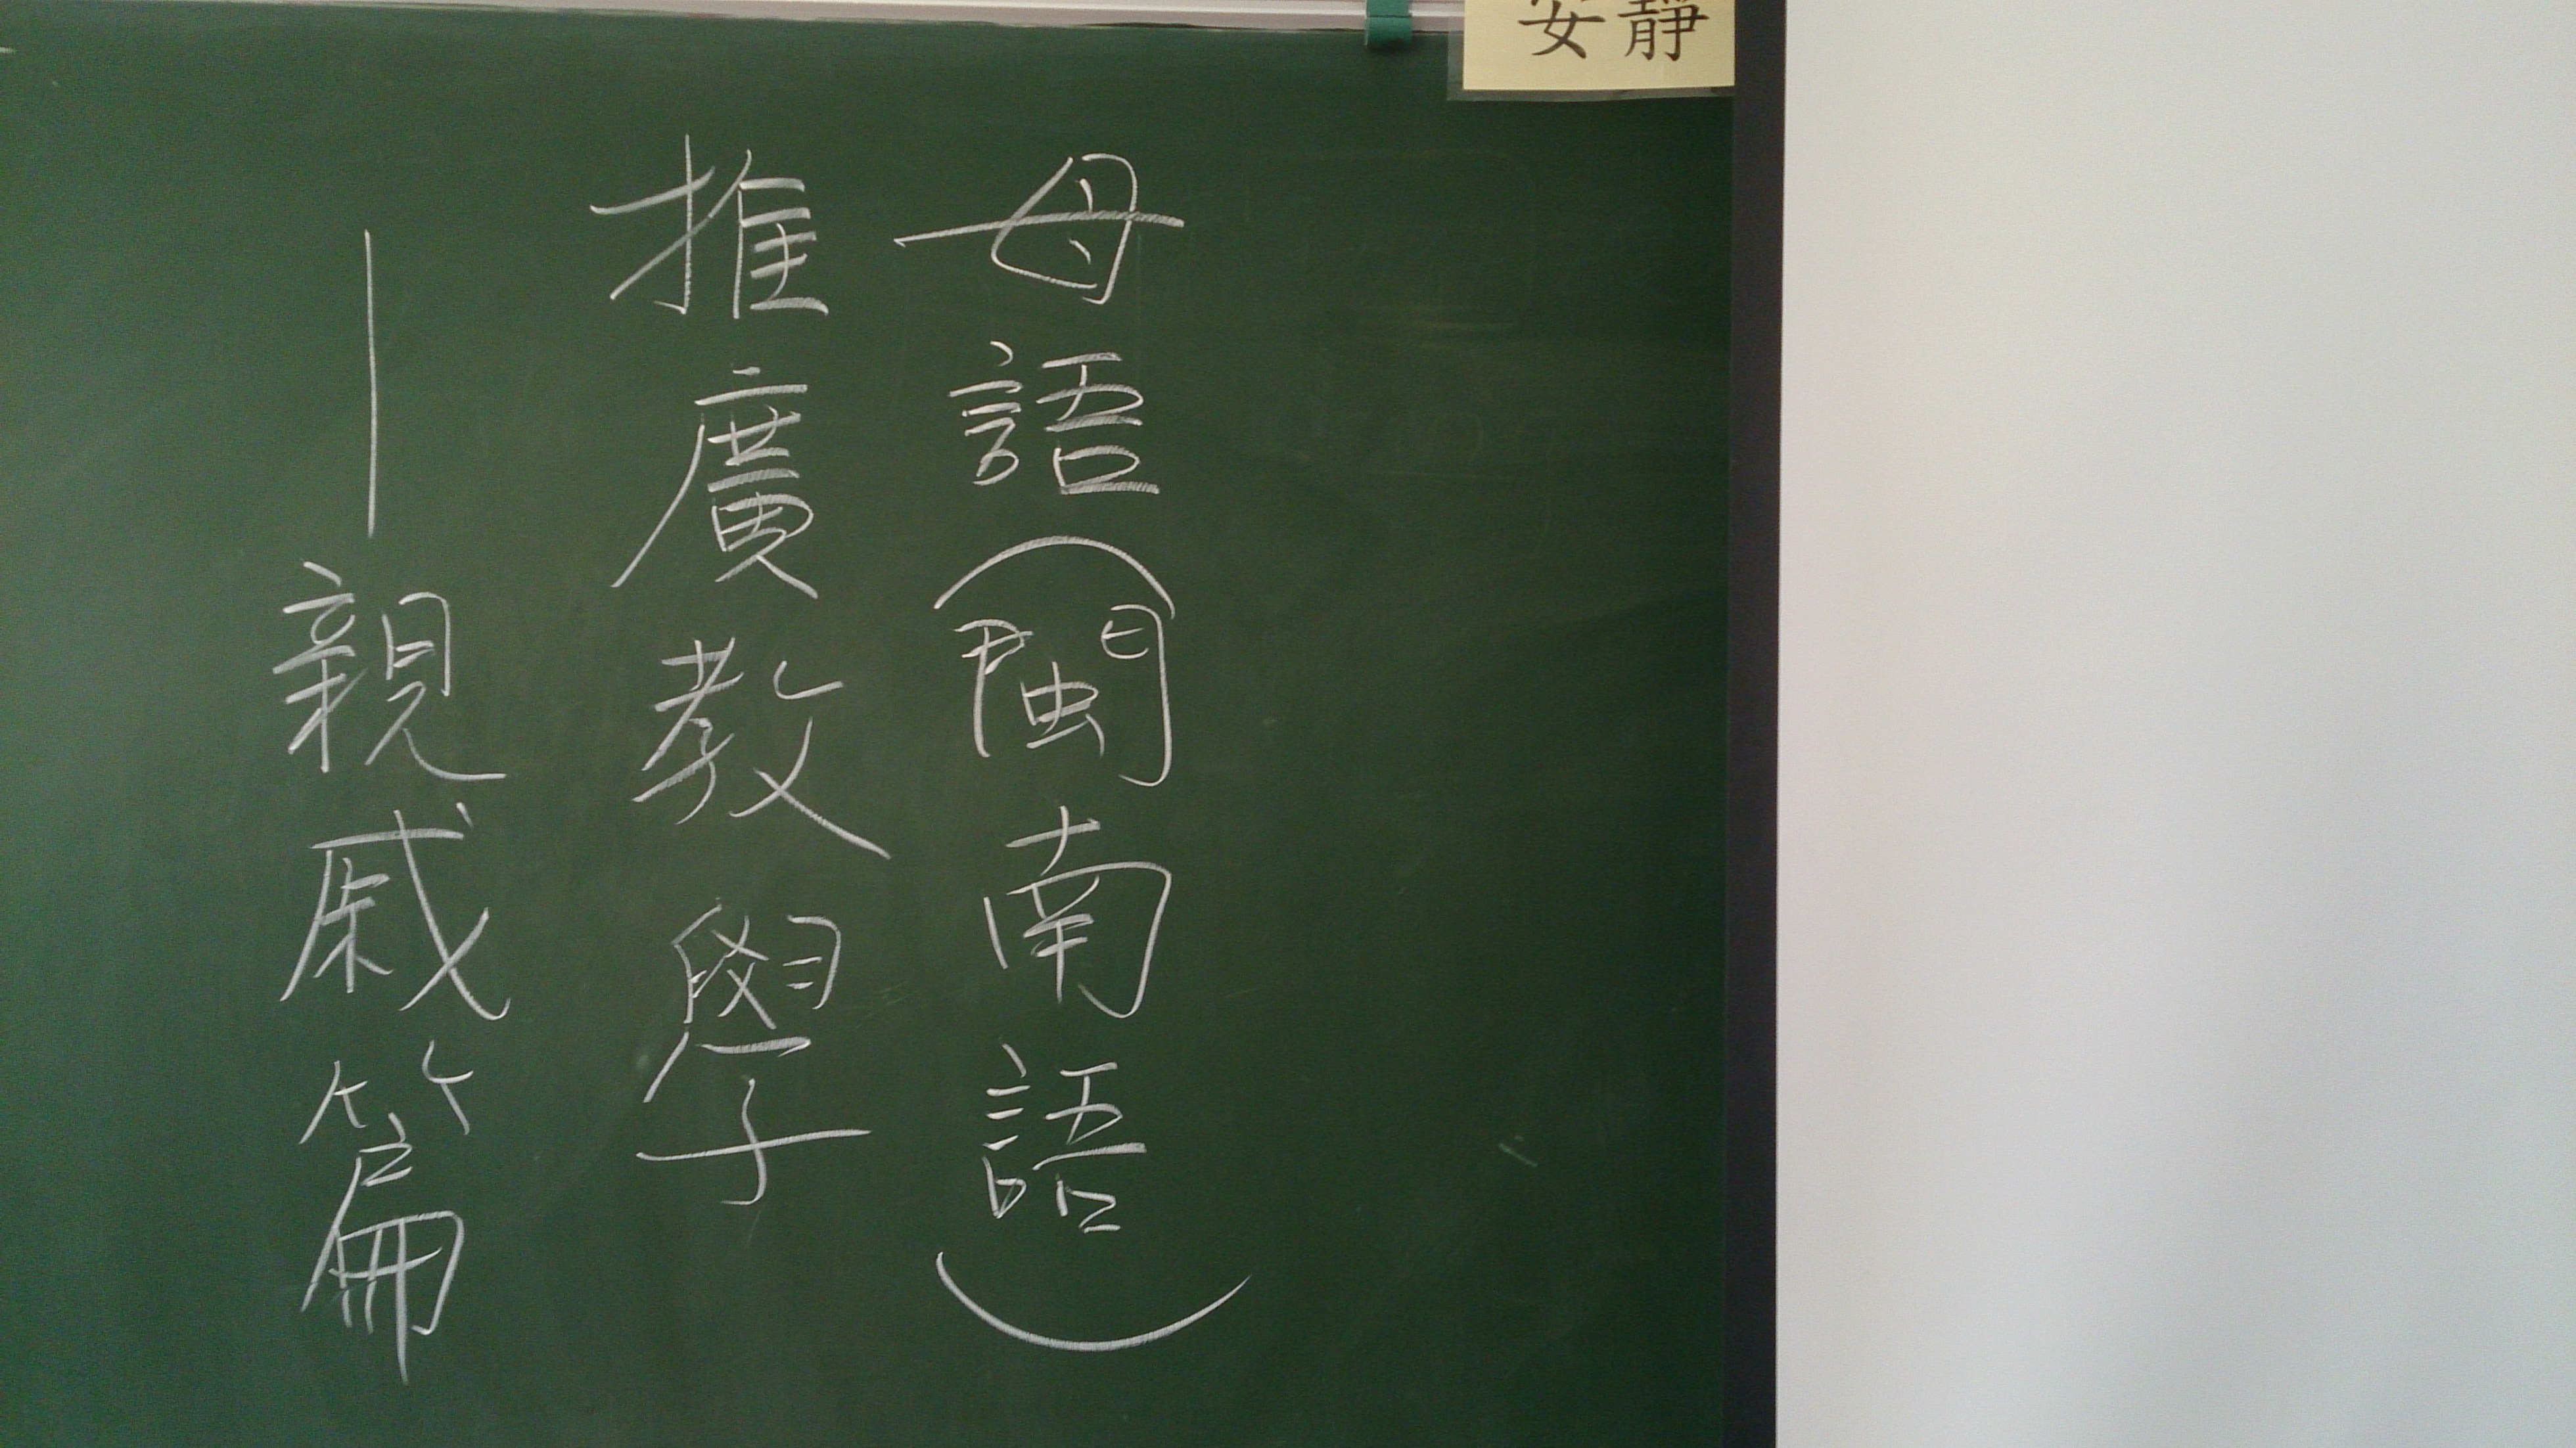 安靜
母語(閩南語)
推廣教學
—親戚篇